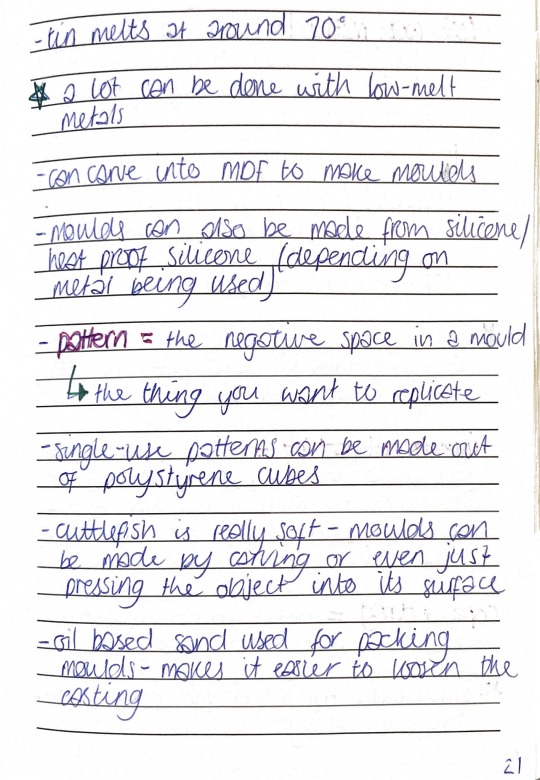 -tin melts at around 70°
☆ a lot can be done with low-melt
metals
-can carve into MDF to make moulds
-moulds can also be made from silicone/
heat proof silicone (depending on
metal being used)
- pattern = the negative space in a mould
↳ the thing you want to replicate
-single-use patterns can be made out
of polystyrene cubes
-cuttlefish is really soft - moulds can
be made by carving or even just
pressing the object into its surface
-oil based sand used for packing
moulds - makes it easier to loosen the
casting
21